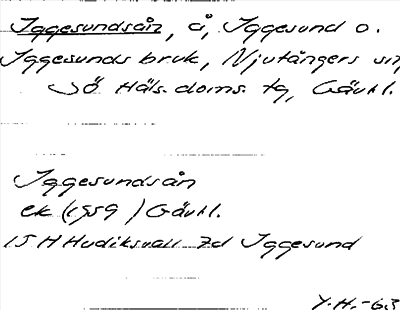 Iggesundsån, å, Iggesund o.
Iggesunds bruk, Njutångers sn,
SÖ Häls. doms. tg, Gävl.
Iggesundsån
ek (1959) Gävl.
15H Hudiksvall 7d Iggesund
Y.H.-63